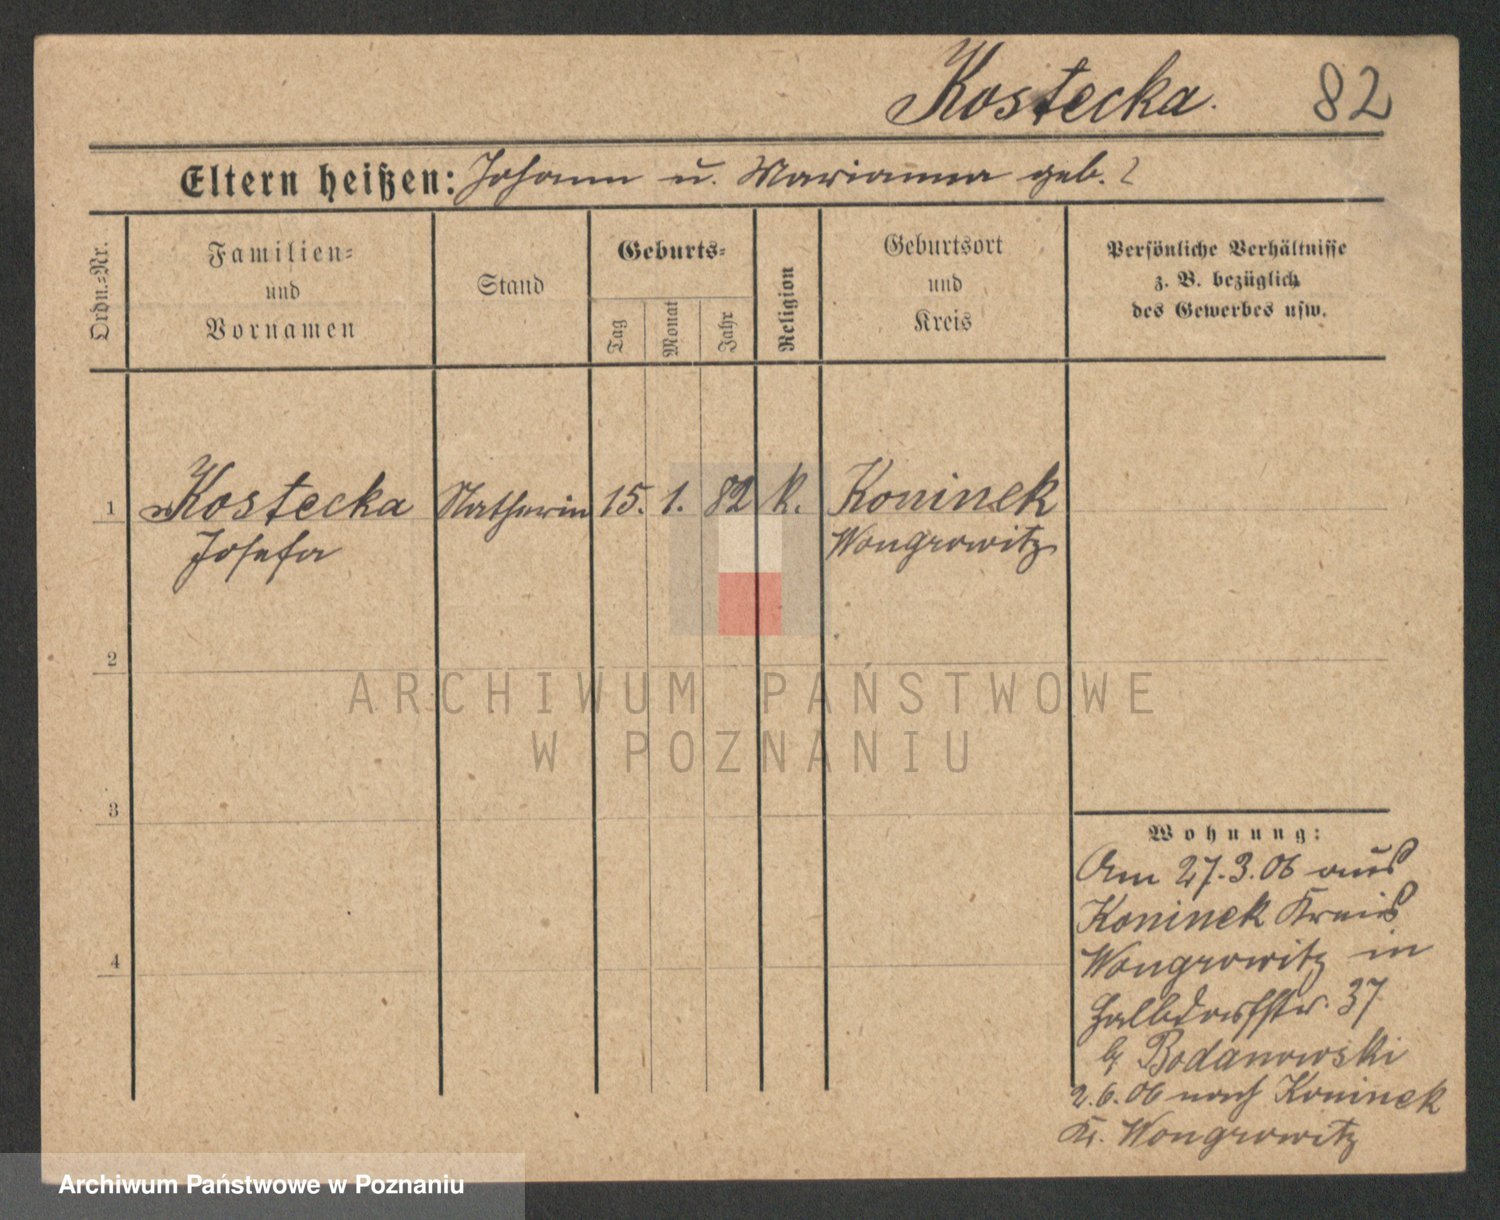 Kostecka. 82
Eltern heißen: Johann u. Marianna geb. ?
Ordn.-Nr.
Familien-
und
Vornamen
Stand
Geburts-
Tag
Monat
Jahr
Religion
Geburtsort
und
Kreis
Persönliche Verhältnisse
z. B. bezüglich
des Gewerbes usw.
1 Kostecka Nätherin 15. 1. 82 k. Koninek
Josefa Wongrowitz
2
3
4
Wohnung:
Am 27.3.06 aus
Koninek Kreis
Wongrowitz in
Halbdorfstr. 37
b/ Bodanowski
2.6.06 nach Koninek
Kr. Wongrowitz
ARCHIWUM PAŃSTWOWE
W POZNANIU
Archiwum Państwowe w Poznaniu